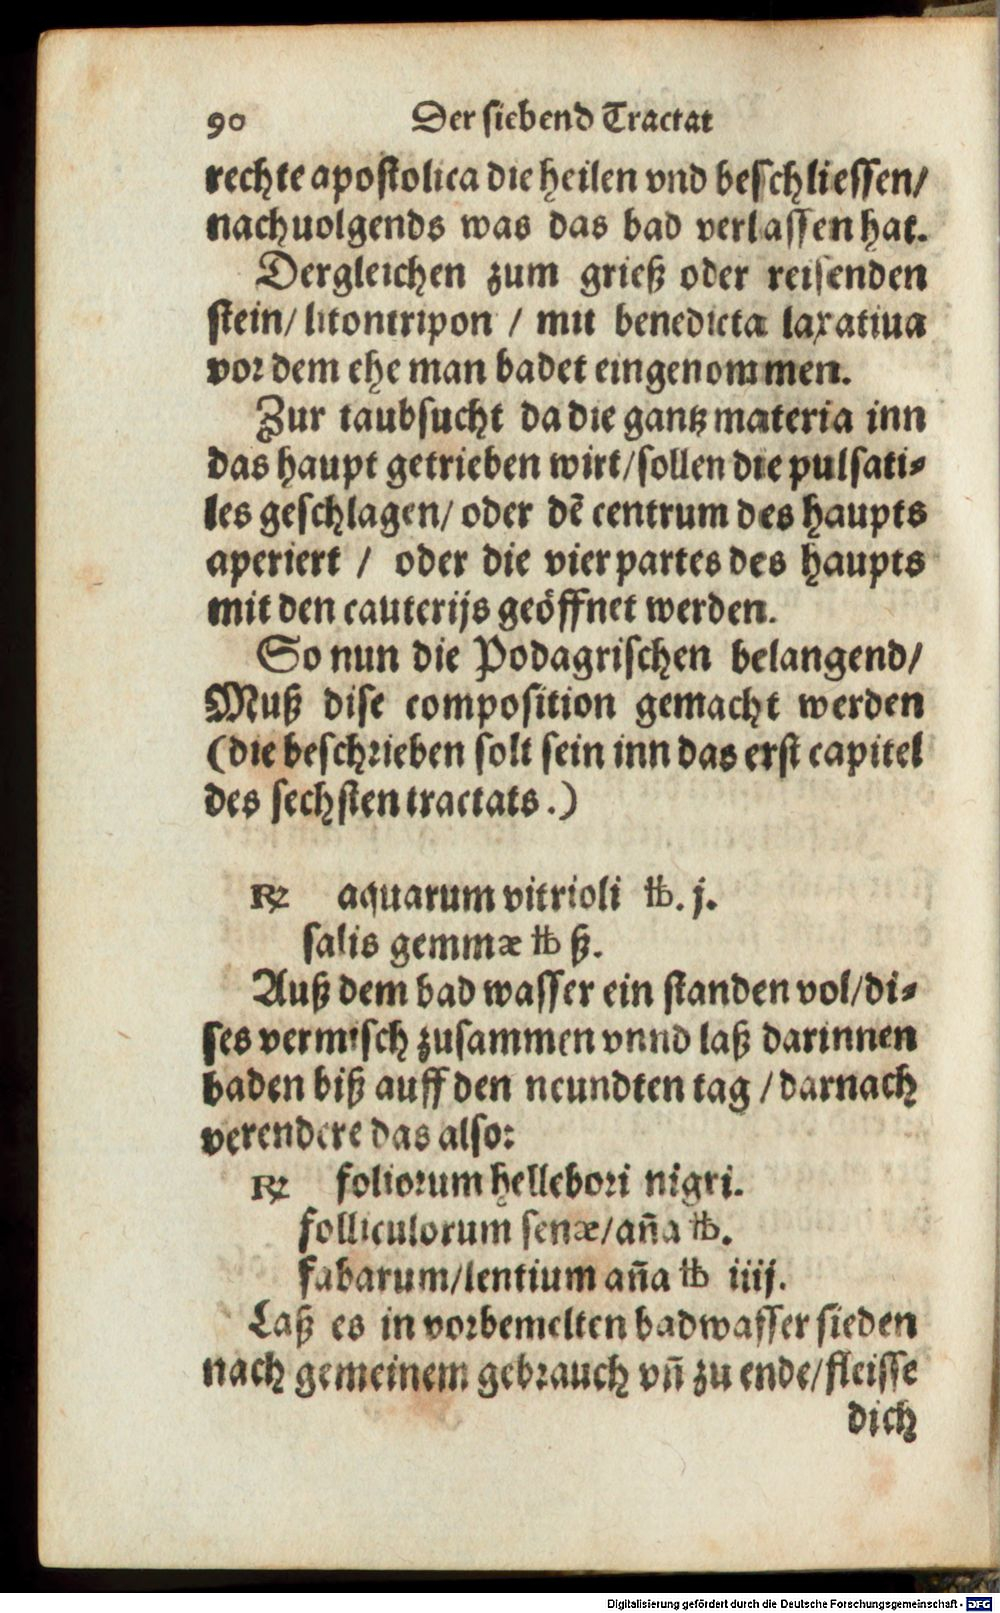 90 Der siebend Tractat
rechte apostolica die heilen vnd beschliessen/
nachuolgends was das bad verlassen hat.
Dergleichen zum grieß oder reisenden
stein/ litontripon / mit benedicta laxatiua
vor dem ehe man badet eingenommen.
Zur taubsucht da die gantz materia inn
das haupt getrieben wirt/sollen die pulsati⸗
les geschlagen/ oder dē centrum des haupts
aperiert / oder die vier partes des haupts
mit den cauterijs geöffnet werden.
So nun die Podagrischen belangend/
Muß dise composition gemacht werden
(die beschrieben solt sein inn das erst capitel
des sechsten tractats.)
℞ aquarum vitrioli ℔. j.
salis gemmæ ℔ ß.
Auß dem bad wasser ein standen vol/di⸗
ses vermisch zusammen vnnd laß darinnen
baden biß auff den neundten tag / darnach
verendere das also:
℞ foliorum hellebori nigri.
folliculorum senæ/an̄a ℔.
fabarum/lentium an̄a ℔ iiij.
Laß es in vorbemelten badwasser sieden
nach gemeinem gebrauch vn̄ zu ende/fleisse
dich
Digitalisierung gefördert durch die Deutsche Forschungsgemeinschaft - DFG